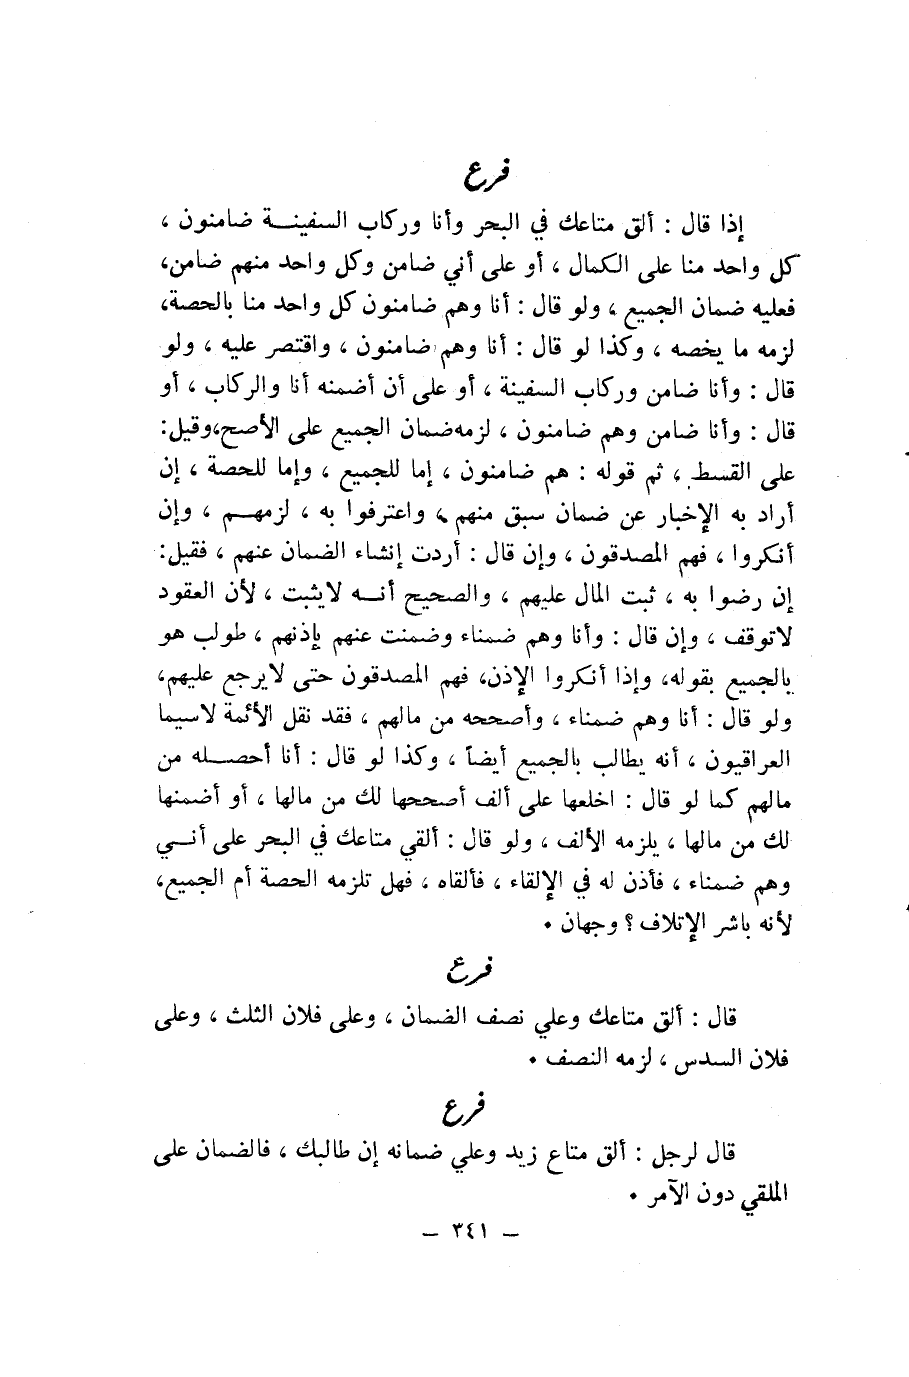 فرع
إذا قال : ألق متاعك في البحر وأنا وركاب السفينــة ضامنون ،
كل واحد منا على الكمال ، أو على أني ضامن وكل واحد منهم ضامن،
فعليه ضمان الجميع ، ولو قال : أنا وهم ضامنون كل واحد منا بالحصة،
لزمه ما يخصه ، وكذا لو قال : أنا وهم ضامنون ، واقتصر عليه ، ولو
قال : وأنا ضامن وركاب السفينة ، أو على أن أضمنه أنا والركاب ، أو
قال : وأنا ضامن وهم ضامنون ، لزمه ضمان الجميع على الأصح،وقيل:
على القسط ، ثم قوله : هم ضامنون ، إما للجميع ، وإما للحصة ، إن
أراد به الإخبار عن ضمان سبق منهم ، واعترفوا به ، لزمهــم ، وإن
أنكروا ، فهم المصدقون ، وإن قال : أردت إنشاء الضمان عنهم ، فقيل:
إن رضوا به ، ثبت المال عليهم ، والصحيح أنــه لايثبت ، لأن العقود
لاتوقف ، وإن قال : وأنا وهم ضمناء وضمنت عنهم بإذنهم ، طولب هو
بالجميع بقوله، وإذا أنكروا الإذن، فهم المصدقون حتى لايرجع عليهم،
ولو قال : أنا وهم ضمناء ، وأصححه من مالهم ، فقد نقل الأئمة لاسيما
العراقيون ، أنه يطالب بالجميع أيضاً ، وكذا لو قال : أنا أحصــله من
مالهم كما لو قال : اخلعها على ألف أصححها لك من مالها ، أو أضمنها
لك من مالها ، يلزمه الألف ، ولو قال : ألقي متاعك في البحر على أنــي
وهم ضمناء ، فأذن له في الإلقاء ، فألقاه ، فهل تلزمه الحصة أم الجميع،
لأنه باشر الإتلاف ؟ وجهان .
فرع
قال : ألق متاعك وعلي نصف الضمان ، وعلى فلان الثلث ، وعلى
فلان السدس ، لزمه النصف .
فرع
قال لرجل : ألق متاع زيد وعلي ضمانه إن طالبك ، فالضمان على
الملقي دون الآمر .
– ٣٤١ –